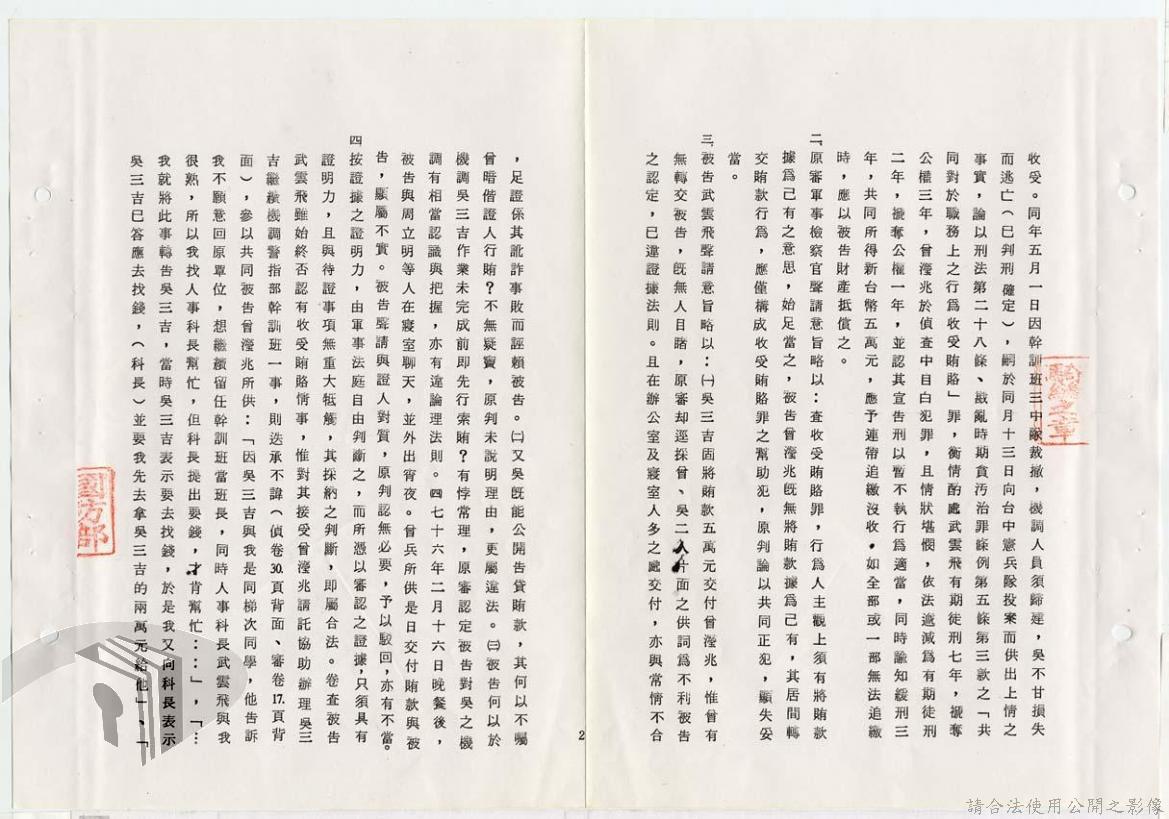 收受。同年五月一日因幹訓班三中隊裁撤，機調人員須歸建，吳不甘損失
而逃亡（已判刑確定），嗣於同月十三日向台中憲兵隊投案而供出上情之
事實，論以刑法第二十八條、戡亂時期貪污治罪條例第五條第三款之「共
同對於職務上之行為收受賄賂」罪，衡情酌處武雲飛有期徒刑七年，褫奪
公權三年，曾瀅兆於偵查中自白犯罪，且情狀堪憫，依法遞減為有期徒刑
二年，褫奪公權一年，並認其宣告刑以暫不執行為適當，同時諭知緩刑三
年，共同所得新台幣五萬元，應予連帶追繳沒收，如全部或一部無法追繳
時，應以被告財產抵償之。
二、原審軍事檢察官聲請意旨略以：查收受賄賂罪，行為人主觀上須有將賄款
據為己有之意思，始足當之，被告曾瀅兆既無將賄款據為己有，其居間轉
交賄款行為，應僅構成收受賄賂罪之幫助犯，原判論以共同正犯，顯失妥
當。
三、被告武雲飛聲請意旨略以：㈠吳三吉固將賄款五萬元交付曾瀅兆，惟曾有
無轉交被告，既無人目睹，原審却逕採曾、吳二人片面之供詞為不利被告
之認定，已違證據法則。且在辦公室及寢室人多之處交付，亦與常情不合
，足證係其訛詐事敗而誣賴被告。㈡又吳既能公開告貸賄款，其何以不囑
曾暗偕證人行賄？不無疑竇，原判未說明理由，更屬違法。㈢被告何以於
機調吳三吉作業未完成前即先行索賄？有悖常理，原審認定被告對吳之機
調有相當認識與把握，亦有違論理法則。㈣七十六年二月十六日晚餐後，
被告與周立明等人在寢室聊天，並外出宵夜。曾兵所供是日交付賄款與被
告，顯屬不實。被告聲請與證人對質，原判認無必要，予以駁回，亦有不當。
四、按證據之證明力，由軍事法庭自由判斷之，而所憑以審認之證據，只須具有
證明力，且與待證事項無重大牴觸，其採納之判斷，即屬合法。卷查被告
武雲飛雖始終否認有收受賄賂情事，惟對其接受曾瀅兆請託協助辦理吳三
吉繼續機調警指部幹訓班一事，則迭承不諱（偵卷30.頁背面、審卷17.頁背
面），參以共同被告曾瀅兆所供：「因吳三吉與我是同梯次同學，他告訴
我不願意回原單位，想繼續留任幹訓班當班長，同時人事科長武雲飛與我
很熟，所以我找人事科長幫忙，但科長提出要錢，才肯幫忙：：：」，「…
我就將此事轉告吳三吉，當時吳三吉表示要去找錢，於是我又向科長表示
吳三吉已答應去找錢，（科長）並要我先去拿吳三吉的兩萬元給他」、「
2
騎縫之章
國防部
請合法使用公開之影像